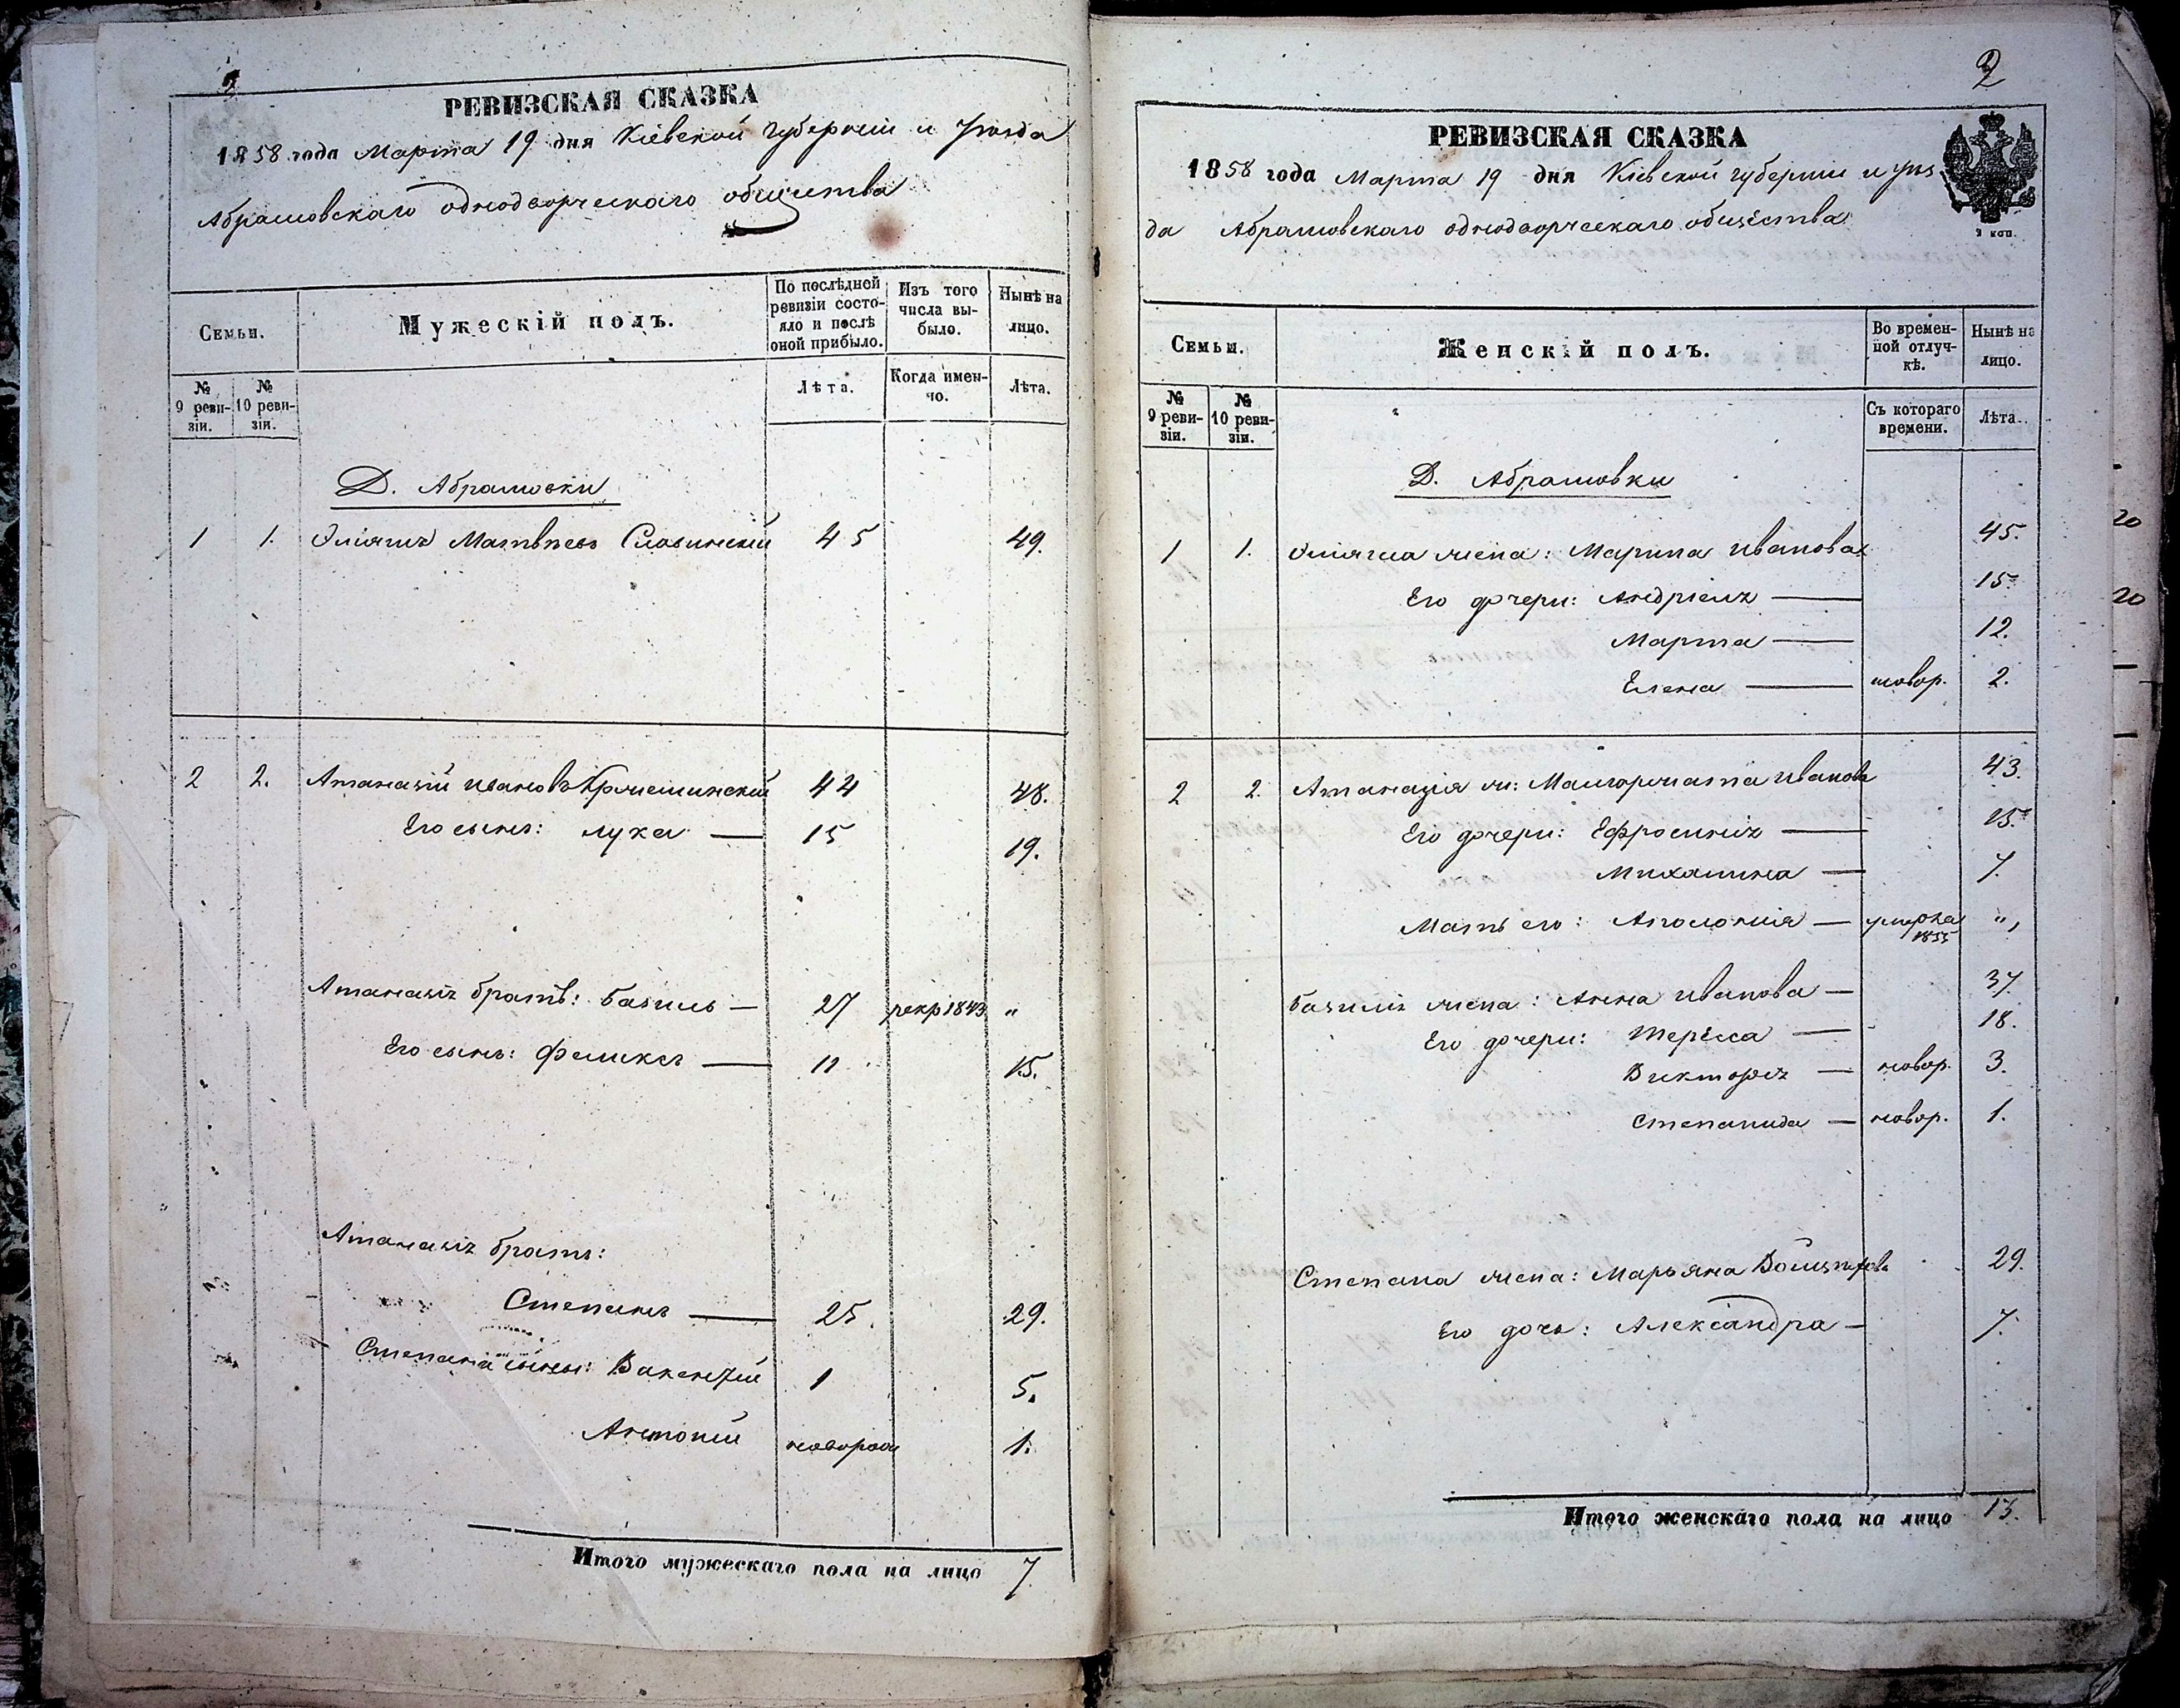 РЕВИЗСКАЯ СКАЗКА
1858 года Марта 19 дня Кіевской губерніи и Уѣзда
Абрамовскаго однодворческаго общества
Семьи.
Мужескій полъ.
По послѣдней ревизіи состояло и послѣ оной прибыло.
Изъ того числа выбыло.
Нынѣ на лицо.
№ 9 ревизіи.
№ 10 ревизіи.
Лѣта.
Когда именно.
Лѣта.
Д. Абрамовки
1 1. Матвѣевъ Славинскій 45 49.
2 2. Атаназій Ивановъ 44 48.
Его сынъ: Лука — 15 19.
Атаназія братъ: Базиль — 27 рекр 1843 "
Его сынъ: Феликсъ — 11 15.
Атаназія братъ:
Степанъ — 25. 29.
Степана сыны: Викентій 1 5.
Антоній новорож 1.
Итого мужескаго пола на лицо 7.
2
РЕВИЗСКАЯ СКАЗКА
1858 года Марта 19 дня Кіевской губерніи и уѣз
да Абрамовскаго однодворческаго общества
3 коп.
Семьи.
Женскій полъ.
Во временной отлучкѣ.
Нынѣ на лицо.
№ 9 ревизіи.
№ 10 ревизіи.
Съ котораго времени.
Лѣта.
Д. Абрамовки
1 1. жена: Марина Иванова 45.
Его дочери: Андріеля — 15.
Марта — 12.
Елена — новор. 2.
2 2. Атаназія ж: Малгоржата Иванова 43.
Его дочери: Ефросинія — 15.
Михалина — 7.
Мать его: Аполонія — умерла 1855 "
Базиля жена: Анна Иванова — 37.
Его дочери: Тересса — 18.
Викторія — новор. 3.
Степанида — новор. 1.
Степана жена: Марьяна 29.
Его дочь: Александра — 7.
Итого женскаго пола на лицо 13.